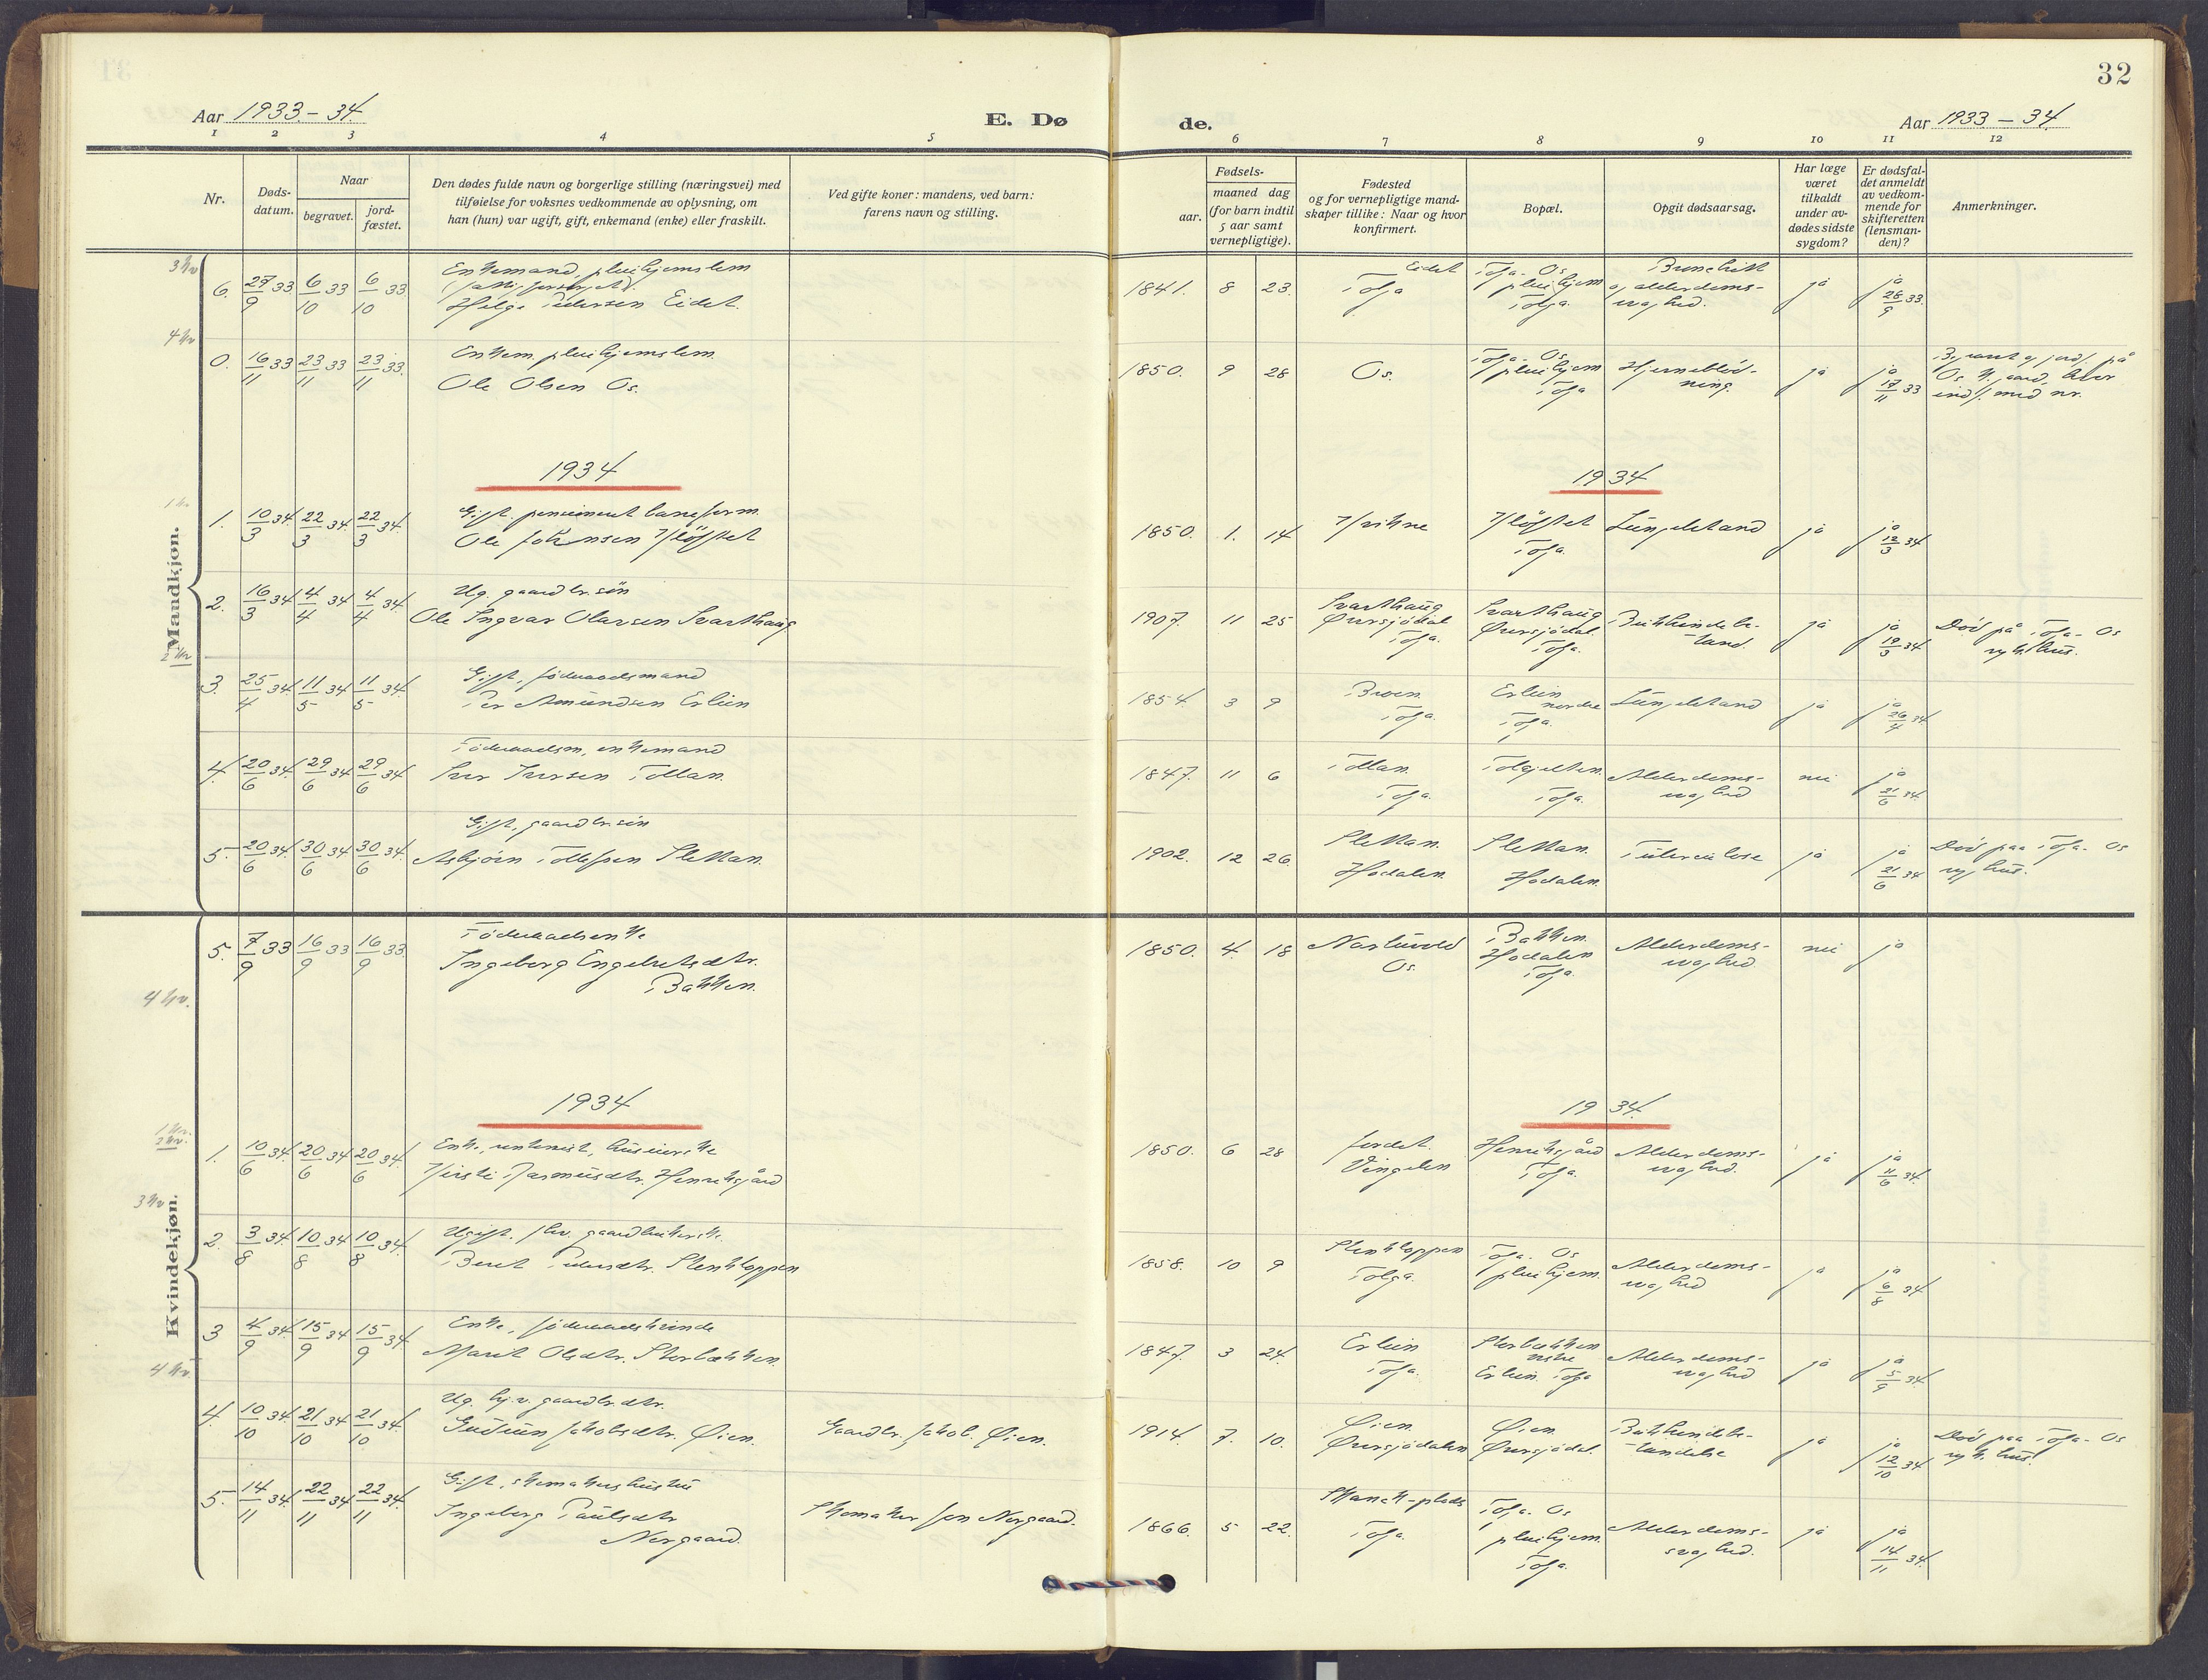 32
Aar 1933.-34.
E. Dø
de.
Aar 1933-34.
1 2 3 4 5 6 7 8 9 10 11 12
Nr.
Døds-
datum.
Naar
begravet.
jord-
fæstet.
Den dødes fulde navn og borgerlige stilling (næringsvei) med
tilføielse for voksnes vedkommende av oplysning, om
han (hun) var ugift, gift, enkemand (enke) eller fraskilt.
Ved gifte koner: mandens, ved barn:
farens navn og stilling.
Fødsels-
aar.
maaned dag
(for barn indtil
5 aar samt
vernepligtige).
Fødested
og for vernepligtige mand-
skaper tillike: Naar og hvor
konfirmert.
Bopæl.
Opgit dødsaarsag.
Har læge
været
tilkaldt
under av-
dødes sidste
sygdom?
Er dødsfal-
det anmeldt
av vedkom-
mende for
skifteretten
(lensman-
den)?
Anmerkninger.
Mandkjøn.
6. 27/9 33 6/10 33 6/10 33
Enkemand, pleihjemslem
Helge Pedersen Eidet.
1841. 8 23.
Eidet
Tolga
Tolga-Os
pleihjem
Tolga.
og alderdoms-
svaghed.
ja
ja
28/9 33.
0. 16/11 33 23/11 33 23/11 33.
Enkem. pleihjemslem.
Ole Olsen Os.
1850. 9 28
Os.
Tolga-Os
pleihjem
Tolga
Hjerneblød-
ning.
ja
ja
17/11 33
Begravet og jordf. på
Os k.gaard, blev
indf. med nr.
1934
1934
1. 10/3 34 22/3 34. 22/3 34.
Gift. pensionert baneform.
Ole Johnsen Kløftet
1850. 1. 14
Kvikne
Kløftet
Tolga.
Lungebetænd
ja
ja
12/3 34
2. 16/3 34 4/4 34 4/4 34.
Ug. gaardbr.søn
Ole Ingvar Olavsen Svarthaug
1907. 11 25
Svarthaug
Øversjødal
Tolga.
Svarthaug
Øversjødal
Tolga.
Bukhindebe-
tænd.
ja
ja
19/3 34
Død på Tolga-Os
sykehus.
3. 25/4 34 11/5 34 11/5 34.
Gift, føderaadsmand
Per Amundsen Erlien
1854. 3 9
Broen.
Tolga.
Erlien
nordre
Tolga.
Lungebetænd
ja
ja
26/4 34
4. 20/6 34. 29/6 34 29/6 34
Føderaadsm., enkemand
Iver Iversen Tollan.
1847. 11 6
Tollan.
Tolga.
Tolga.
Alderdoms-
svaghed
nei
ja
21/6 34.
5. 20/6 34. 30/6 34 30/6 34.
Gift, gaardbr.søn
Asbjørn Tollefsen Slettan.
1902. 12 26
Slettan.
Hodalen.
Slettan.
Hodalen.
Tuberculose
ja
ja
21/6 34
Død paa Tolga-Os
sykehus.
Kvindekjøn.
5. 7/9 33 16/9 33 16/9 33
Føderaadsenke
Ingeborg Engebretsdtr.
Bakken.
1850. 4. 18
Narbuvold
Os.
Bakken.
Hodalen
Tolga.
Alderdoms-
svaghed.
nei
ja
4 kv.
1934
1934.
1. 10/6 34 20/6 34 20/6 34
Kirsti Rasmusdtr. Henriksgård
1850. 6 28
Jordet.
Vingelen
Henriksgård
Tolga.
Alderdoms-
svaghed.
ja
ja
11/6 34.
2. 3/8 34. 10/8 34 10/8 34.
Ugift.
Beret Pedersdtr. Stenkloppen
1858. 10 9
Stenkloppen
Tolga.
Tolga-Os
pleihjem.
Alderdoms-
svaghed
ja
ja
6/8 34
3 4/9 34 15/9 34 15/9 34
Enke, føderaadskvinde
Marit Olsdtr. Storbækken.
1847. 3 24.
Erlien
Tolga.
Storbækken
Erlien. Tolga
Alderdoms-
svaghed
ja
ja
5/9 34.
4. 10/10 34 21/10 34 21/10 34.
Ug. hj.v. gaardbr.dtr.
Gudrun Jakobsdtr. Øien.
Gaardbr. Jakob Øien.
1914. 7. 10.
Øien.
Øversjødalen
Øien
Øversjødal.
Bukhindebe-
tændelse
ja
ja
12/10 34
Død paa Tolga-Os
sykehus.
5. 14/11 34. 22/11 34 22/11 34.
Gift, skomakerhustru
Ingeborg Paulsdtr
Norgaard.
Skomaker Jon Norgaard.
1866. 5 22.
Tolga.
Tolga-Os
pleihjem.
Tolga.
Alderdoms-
svaghed.
ja
ja
14/11 34.